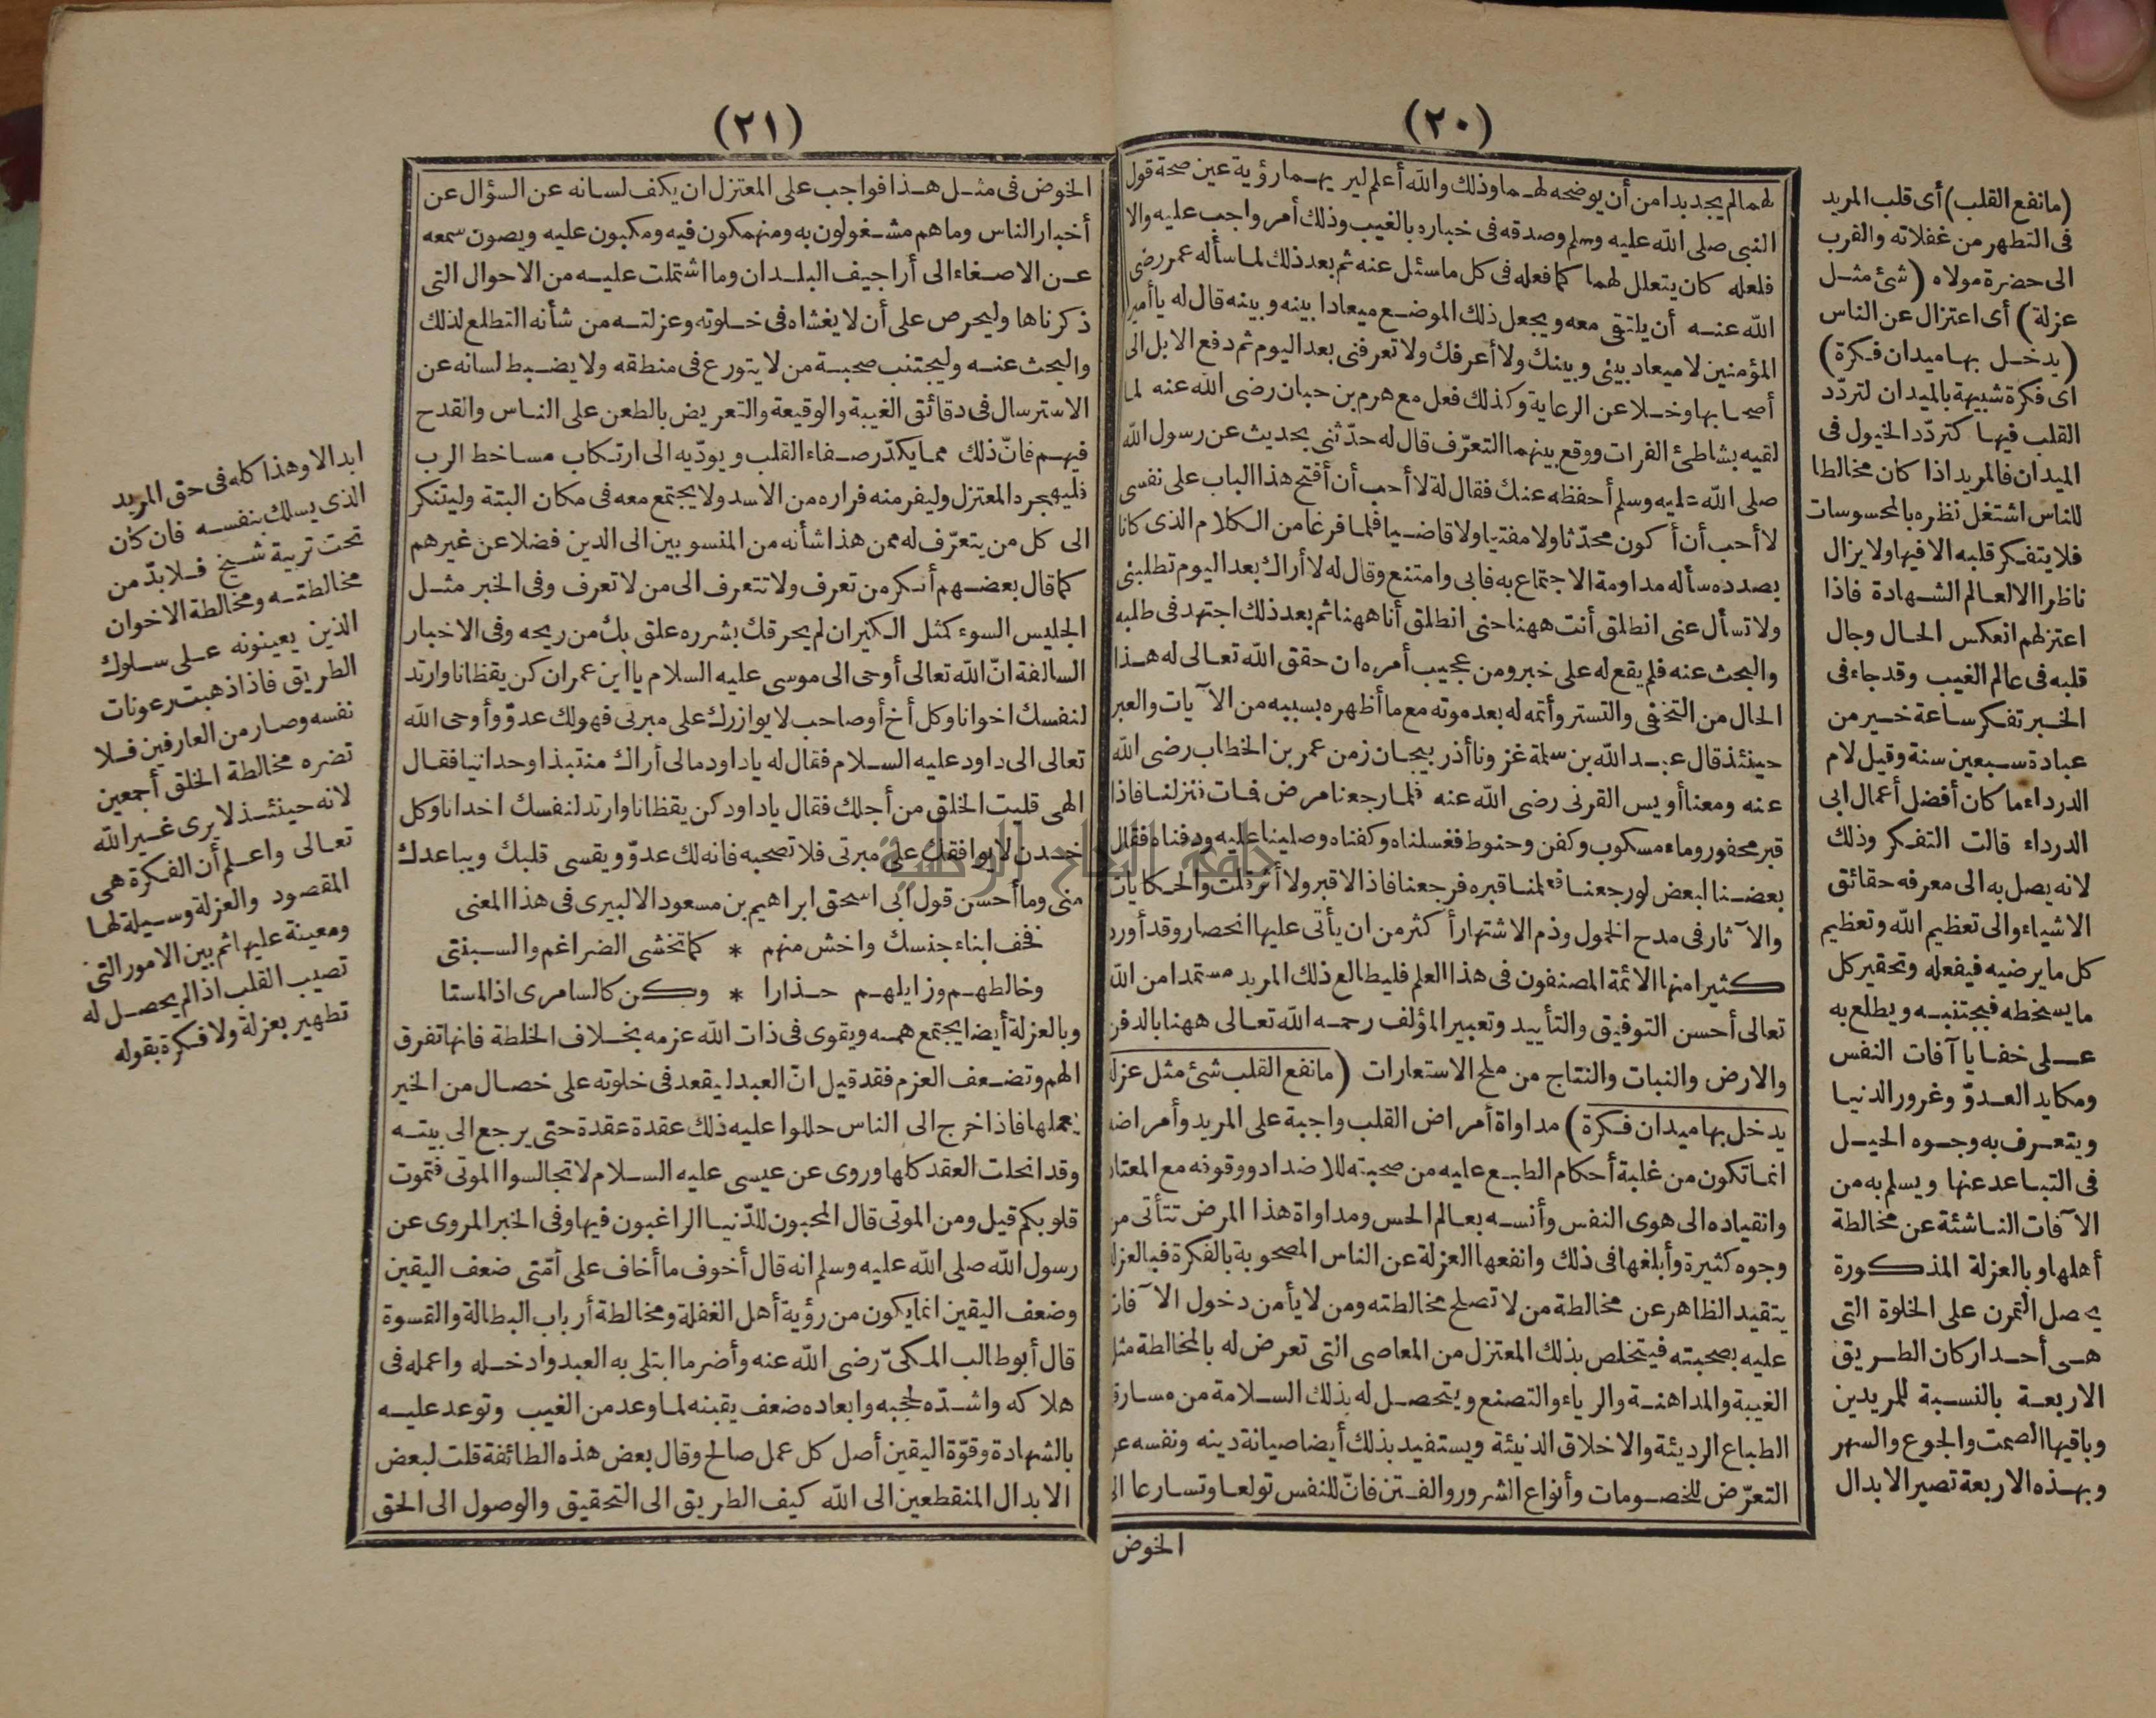 (٢٠)
لهما لم يجد بدا من أن يوضحه لهما وذلك والله أعلم ليريهما رؤية عين صحة قول
النبي صلى الله عليه وسلم وصدقه فى خباره بالغيب وذلك أمر واجب عليه والا
فلعله كان يتعلل لهما كما فعله فى كل ما سئل عنه ثم بعد ذلك لما سأله عمر رضى
الله عنه أن يلتقى معه ويجعل ذلك الموضع ميعادا بينه وبينه قال له يا أمير
المؤمنين لا ميعاد بينى وبينك ولا أعرفك ولا تعرفنى بعد اليوم ثم دفع الابل الى
أصحابها وخلا عن الرعاية وكذلك فعل مع هرم بن حبان رضى الله عنه لما
لقيه بشاطئ الفرات ووقع بينهما التعرّف قال له حدّثنى بحديث عن رسول الله
صلى الله عليه وسلم أحفظه عنك فقال له لا أحب أن أفتح هذا الباب على نفسى
لا أحب أن أكون محدّثا ولا مفتيا ولا قاضيا فلما فرغا من الكلام الذى كانا
بصدده سأله مداومة الاجتماع به فابى وامتنع وقال له لا أراك بعد اليوم تطلبنى
ولا تسأل عنى انطلق أنت ههنا حتى انطلق أنا ههنا ثم بعد ذلك اجتهد فى طلبه
والبحث عنه فلم يقع له على خبر ومن عجيب أمره ان حقق الله تعالى له هذا
الحال من التخفى والتستر وأتمه له بعد موته مع ما أظهره بسببه من الآيات والعبر
حينئذ قال عبد الله بن سلمة غزونا أذربيجان زمن عمر بن الخطاب رضى الله
عنه ومعنا أويس القرنى رضى الله عنه فلما رجعنا مرض فمات فنزلنا فاذا
قبر محفور وماء مسكوب وكفن وحنوط فغسلناه وكفناه وصلينا عليه ودفناه فقال
بعضنا لبعض لو رجعنا فعلمنا قبره فرجعنا فاذا لا قبر ولا أثر قلت والحكايات
والآثار فى مدح الخمول وذم الاشتهار أكثر من ان يأتى عليها انحصار وقد أورد
كثيرا منها الائمة المصنفون فى هذا العلم فليطالع ذلك المريد مستمدا من الله
تعالى أحسن التوفيق والتأييد وتعبير المؤلف رحمه الله تعالى ههنا بالدفن
والارض والنبات والنتاج من ملح الاستعارات (ما نفع القلب شئ مثل عزلة
يدخل بها ميدان فكرة) مداواة أمراض القلب واجبة على المريد وأمراضه
انما تكون من غلبة أحكام الطبع عليه من صحبته للاضداد ووقوفه مع المعتاد
وانقياده الى هوى النفس وأنسه بعالم الحس ومداواة هذا المرض تتأتى من
وجوه كثيرة وأبلغها فى ذلك وانفعها العزلة عن الناس المصحوبة بالفكرة فبالعزلة
يتقيد الظاهر عن مخالطة من لا تصلح مخالطته ومن لا يأمن دخول الآفات
عليه بصحبته فيتخلص بذلك المعتزل من المعاصى التى تعرض له بالمخالطة مثل
الغيبة والمداهنة والرياء والتصنع ويتحصل له بذلك السلامة من مسارقة
الطباع الرديئة والاخلاق الدنيئة ويستفيد بذلك أيضا صيانة دينه ونفسه عن
التعرّض للخصومات وأنواع الشرور والفتن فانّ للنفس تولعا وتسارعا الى
الخوض
(ما نفع القلب) أى قلب المريد
فى التطهر من غفلاته والقرب
الى حضرة مولاه (شئ مثل
عزلة) أى اعتزال عن الناس
(يدخل بها ميدان فكرة)
اى فكرة شبيهة بالميدان لتردّد
القلب فيها كتردّد الخيول فى
الميدان فالمريد اذا كان مخالطا
للناس اشتغل نظره بالمحسوسات
فلا يتفكر قلبه الا فيها ولا يزال
ناظرا الا لعالم الشهادة فاذا
اعتزلهم انعكس الحال وجال
قلبه فى عالم الغيب وقد جاء فى
الخبر تفكر ساعة خير من
عبادة سبعين سنة وقيل لام
الدرداء ما كان أفضل أعمال ابى
الدرداء قالت التفكر وذلك
لانه يصل به الى معرفه حقائق
الاشياء والى تعظيم الله وتعظيم
كل ما يرضيه فيفعله وتحقير كل
ما يسخطه فيجتنبه ويطلع به
على خفايا آفات النفس
ومكايد العدوّ وغرور الدنيا
ويتعرف به وجوه الحيل
فى التباعد عنها ويسلم به من
الآفات الناشئة عن مخالطة
أهلها وبالعزلة المذكورة
يحصل التمرن على الخلوة التى
هى أحد اركان الطريق
الاربعة بالنسبة للمريدين
وباقيها الصمت والجوع والسهر
وبهذه الاربعة تصير الابدال
(٢١)
الخوض فى مثل هذا فواجب على المعتزل ان يكف لسانه عن السؤال عن
أخبار الناس وما هم مشغولون به ومنهمكون فيه ومكبون عليه ويصون سمعه
عن الاصغاء الى أراجيف البلدان وما اشتملت عليه من الاحوال التى
ذكرناها وليحرص على أن لا يغشاه فى خلوته وعزلته من شأنه التطلع لذلك
والبحث عنه وليجتنب صحبة من لا يتورع فى منطقه ولا يضبط لسانه عن
الاسترسال فى دقائق الغيبة والوقيعة والتعريض بالطعن على الناس والقدح
فيهم فانّ ذلك مما يكدّر صفاء القلب ويودّيه الى ارتكاب مساخط الرب
فليهجره المعتزل وليفر منه فراره من الاسد ولا يجتمع معه فى مكان البتة وليتنكر
الى كل من يتعرّف له ممن هذا شأنه من المنسوبين الى الدين فضلا عن غيرهم
كما قال بعضهم أنكر من تعرف ولا تتعرف الى من لا تعرف وفى الخبر مثل
الجليس السوء كمثل الكيران لم يحرقك بشرره علق بك من ريحه وفى الاخبار
السالفة انّ الله تعالى أوحى الى موسى عليه السلام يا ابن عمران كن يقظانا وارتد
لنفسك اخوانا وكل أخ أو صاحب لا يوازرك على مبرتى فهو لك عدوّ وأوحى الله
تعالى الى داود عليه السلام فقال له يا داود مالى أراك منتبذا وحدانيا فقال
الهى قليت الخلق من أجلك فقال يا داود كن يقظانا وارتد لنفسك اخدانا وكل
خدن لا يوافقك على مبرتى فلا تصحبه فانه لك عدوّ ويقسى قلبك ويباعدك
منى وما أحسن قول أبى اسحق ابراهيم بن مسعود الالبيرى فى هذا المعنى
فخف ابناء جنسك واخش منهم * كما تخشى الضراغم والسبنتى
وخالطهم وزايلهم حذارا * وكن كالسامرى اذا لمستا
وبالعزلة أيضا يجتمع همه ويقوى فى ذات الله عزمه بخلاف الخلطة فانها تفرق
الهم وتضعف العزم فقد قيل انّ العبد ليقعد فى خلوته على خصال من الخير
يعملها فاذا خرج الى الناس حللوا عليه ذلك عقدة عقدة حتى يرجع الى بيته
وقد انحلت العقد كلها وروى عن عيسى عليه السلام لا تجالسوا الموتى فتموت
قلوبكم قيل ومن الموتى قال المحبون للدّنيا الراغبون فيها وفى الخبر المروى عن
رسول الله صلى الله عليه وسلم انه قال أخوف ما أخاف على أمّتى ضعف اليقين
وضعف اليقين انما يكون من رؤية أهل الغفلة ومخالطة أرباب البطالة والقسوة
قال أبو طالب المكىّ رضى الله عنه وأضر ما ابتلى به العبد وادخله واعمله فى
هلاكه واشدّه لحجبه وابعاده ضعف يقينه لما وعد من الغيب وتوعد عليه
بالشهادة وقوّة اليقين أصل كل عمل صالح وقال بعض هذه الطائفة قلت لبعض
الابدال المنقطعين الى الله كيف الطريق الى التحقيق والوصول الى الحق
ابدالا وهذا كله فى حق المريد
الذى يسلك بنفسه فان كان
تحت تربية شيخ فلا بدّ من
مخالطته ومخالطة الاخوان
الذين يعينونه على سلوك
الطريق فاذا ذهبت رعونات
نفسه وصار من العارفين فلا
تضره مخالطة الخلق أجمعين
لانه حينئذ لا يرى غير الله
تعالى واعلم أن الفكرة هى
المقصود والعزلة وسيلة لها
ومعينة عليها ثم بين الامور التى
تصيب القلب اذا لم يحصل له
تطهير بعزلة ولا فكرة بقوله